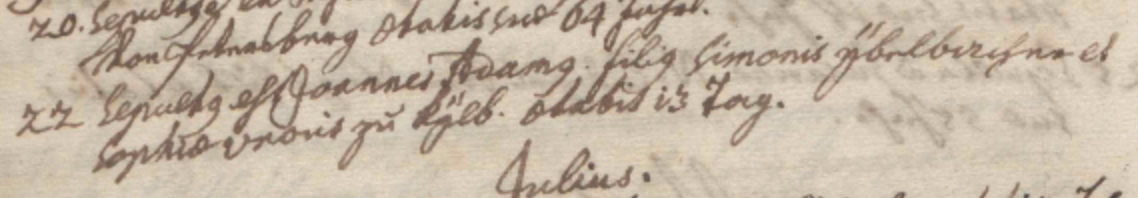 20. Sepultus
Von Petersberg ætatis suæ 64 Jahr.
22 Sepultus est Joannes Adamus filius Simonis Ÿbelbacher et
Sophiæ uxoris zu Kÿlb. ætatis 13 Tag.
Julius.